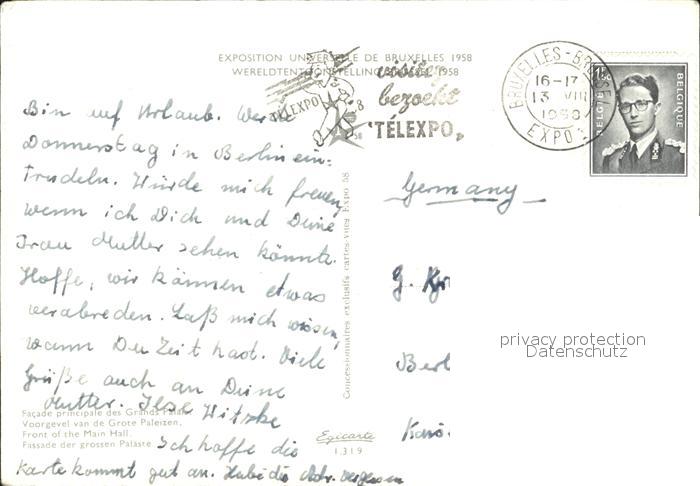 EXPOSITION UNIVERSELLE DE BRUXELLES 1958
WERELDTENTOONSTELLING 1958
TÉLEXPO 58
visitez
bezoekt
"TÉLEXPO"
BRUXELLES-BRUSSEL
16-17
13 VIII
1958
EXPO
1,50
BELGIE
BELGIQUE
Bin auf Urlaub. Werde
Donnerstag in Berlin ein-
trudeln. Würde mich freuen,
wenn ich Dich und Deine
Frau Mutter sehen könnte.
Hoffe, wir können etwas
verabreden. Laß mich wissen,
wann Du Zeit hast. Viele
Grüße auch an Deine
Mutter. Ilse Witzke
Ich hoffe die
Karte kommt gut an. Habe die Adr. vergessen
Germany
G.
Berl
privacy protection
Datenschutz
Concessionnaires exclusifs cartes-vues Expo 58
Façade principale des Grands Palais.
Voorgevel van de Grote Paleizen.
Front of the Main Hall.
Fassade der grossen Paläste.
Egicarte
1.319